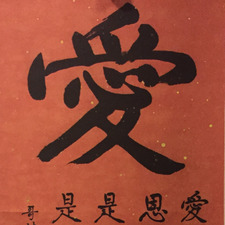 愛
愛恩是是
哥